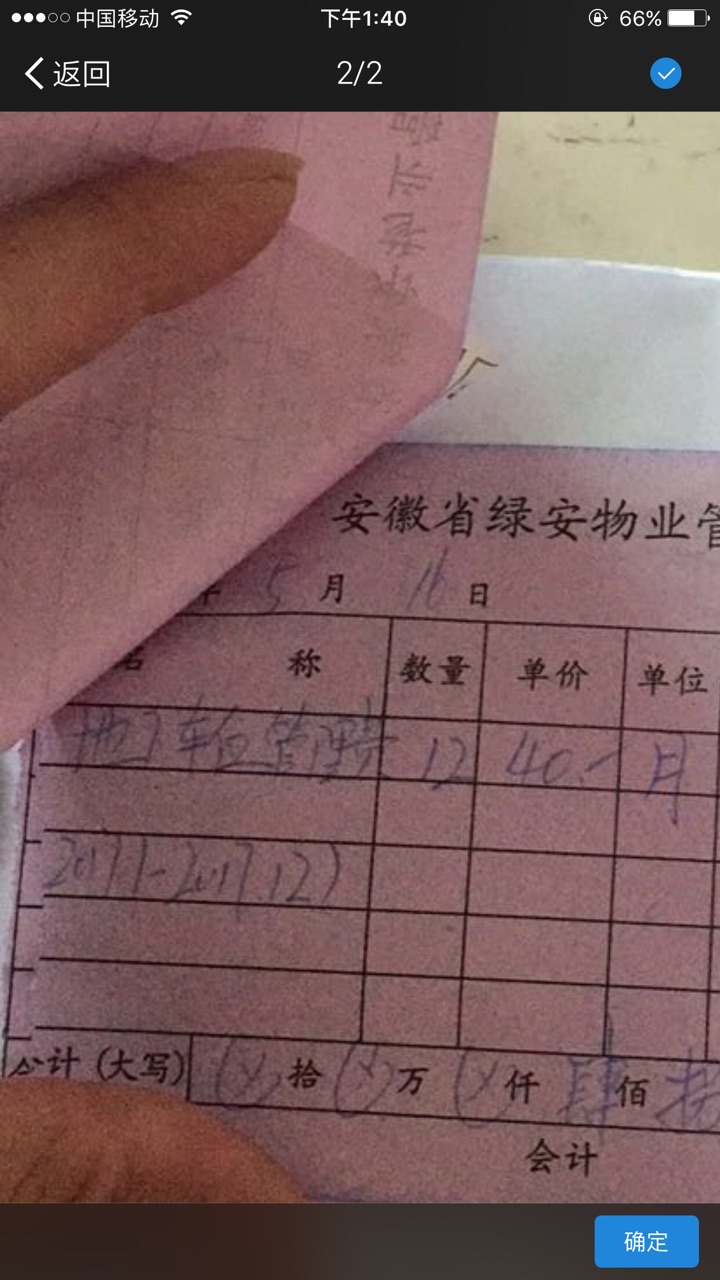 中国移动 下午1:40 66%
返回 2/2
安徽省绿安物业管
年 5 月 16 日
名 称 数量 单价 单位
地下车位管理费 12 40.- 月
2017.1-2017.12)
合计(大写) (×) 拾 (×) 万 (×) 仟 肆 佰
会计
确定